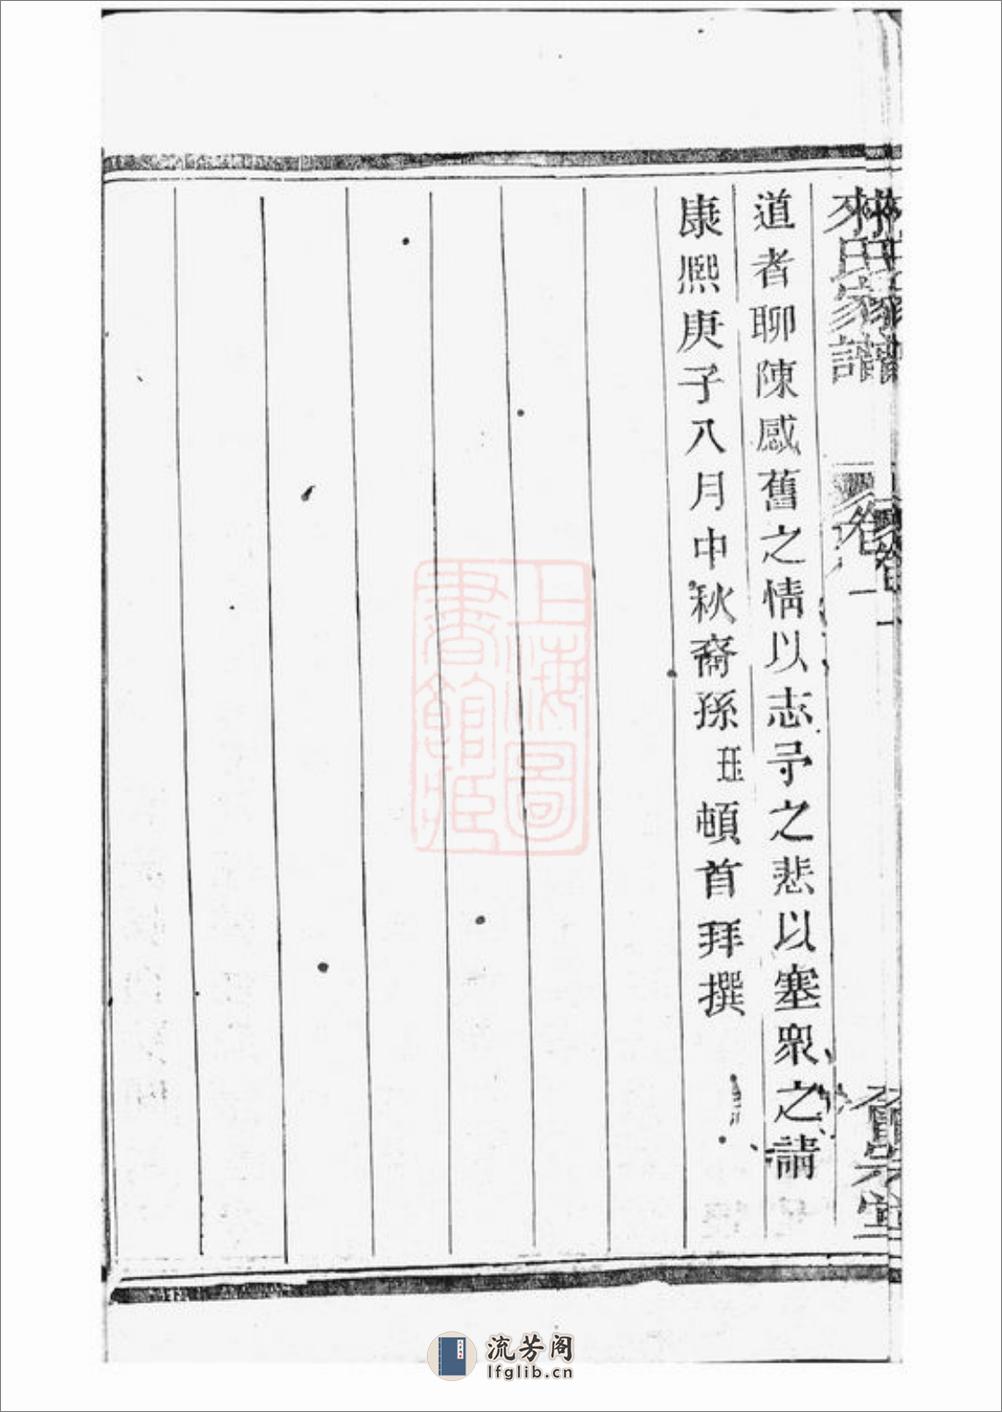 道者聊陳感舊之情以志予之悲以塞衆之請
康熙庚子八月中秋裔孫玨頓首拜撰
氏家譜
卷一
上海圖
書館藏
流芳阁
lfglib.cn